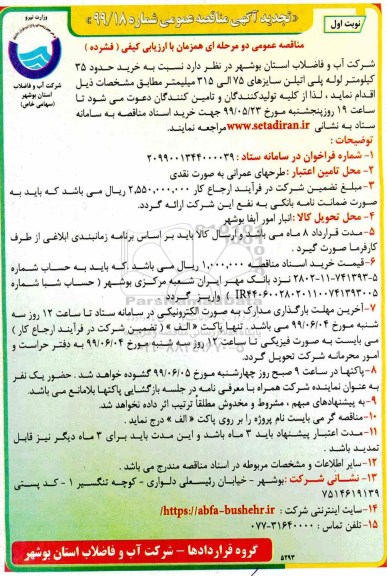 نوبت اول
«تجدید آگهی مناقصه عمومی شماره ۹۹/۱۸»
وزارت نیرو
شرکت آب و فاضلاب
استان بوشهر
(سهامی خاص)
مناقصه عمومی دو مرحله ای همزمان با ارزیابی کیفی ( فشرده )
شرکت آب و فاضلاب استان بوشهر در نظر دارد نسبت به خرید حدود ۳۵
کیلومتر لوله پلی اتیلن سایزهای ۷۵ الی ۳۱۵ میلیمتر مطابق مشخصات ذیل
اقدام نماید ، لذا از کلیه تولیدکنندگان و تامین کنندگان دعوت می شود تا
ساعت ۱۹ روز پنجشنبه مورخ ۹۹/۰۵/۲۳ جهت خرید اسناد مناقصه به سامانه
ستاد به نشانی www.setadiran.ir مراجعه نمایند.
توضیحات :
۱- شماره فراخوان در سامانه ستاد : ۲۰۹۹۰۰۱۳۴۴۰۰۰۰۳۹
۲- محل تامین اعتبار :طرحهای عمرانی به صورت نقدی
۳- مبلغ تضمین شرکت در فرآیند ارجاع کار ۲,۵۵۰,۰۰۰,۰۰۰ ریال می باشد که باید به
صورت ضمانت نامه بانکی به نفع این شرکت ارائه گردد.
۴- محل تحویل کالا :انبار امور آبفا بوشهر
۵- مدت قرارداد ۸ ماه می باشد و ارسال کالا باید بر اساس برنامه زمانبندی ابلاغی از طرف
کارفرما صورت گیرد .
۶- قیمت خرید اسناد مناقصه ۱,۰۰۰,۰۰۰ ریال می باشد .که باید به حساب شماره
۲۸۰۲-۱۱-۷۴۱۳۹۳-۵ نزد بانک مهر ایران شعبه مرکزی بوشهر ( حساب شبا شماره
IR۴۴۰۶۰۰۲۸۰۲۰۱۱۰۰۷۴۱۳۹۳۰۰۵ ) واریز گردد .
۷- آخرین مهلت بارگذاری مدارک به صورت الکترونیکی در سامانه ستاد تا ساعت ۱۲ روز سه
شنبه مورخ ۹۹/۰۶/۰۴ می باشد . تنها پاکت « الف » ( تضمین شرکت در فرآیند ارجاع کار )
می بایست به صورت فیزیکی تا ساعت ۱۲ روز سه شنبه مورخ ۹۹/۰۶/۰۴ به دفتر حراست و
امور محرمانه شرکت تحویل گردد.
۸- پاکتها در ساعت ۹ صبح روز چهارشنبه مورخ ۹۹/۰۶/۰۵ گشوده خواهد شد . حضور یک نفر
به عنوان نماینده شرکت همراه با معرفی نامه در جلسه بازگشایی پاکتها بلامانع می باشد.
۹- به پیشنهادهای مبهم ، مشروط و مخدوش مطلقاً ترتیب اثر داده نخواهد شد.
۱۰- مناقصه گر می بایست نام پروژه را بر روی پاکت « الف » درج نماید .
۱۱- مدت اعتبار پیشنهاد باید ۳ ماه باشد و این مدت باید برای ۳ ماه دیگر نیز قابل
تمدید باشد .
۱۲- سایر اطلاعات و مشخصات مربوطه در اسناد مناقصه مندرج می باشد .
۱۳- نشانی شرکت :بوشهر - خیابان رئیسعلی دلواری - کوچه تنگسیر ۱ - کد پستی
۷۵۱۴۶۱۹۱۳۹
۱۴- سایت اینترنتی شرکت : https://abfa-bushehr.ir/
۱۵- تلفن تماس : ۳۱۶۴۰۰۰۰-۰۷۷
گروه قراردادها – شرکت آب و فاضلاب استان بوشهر
۵۲۹۳